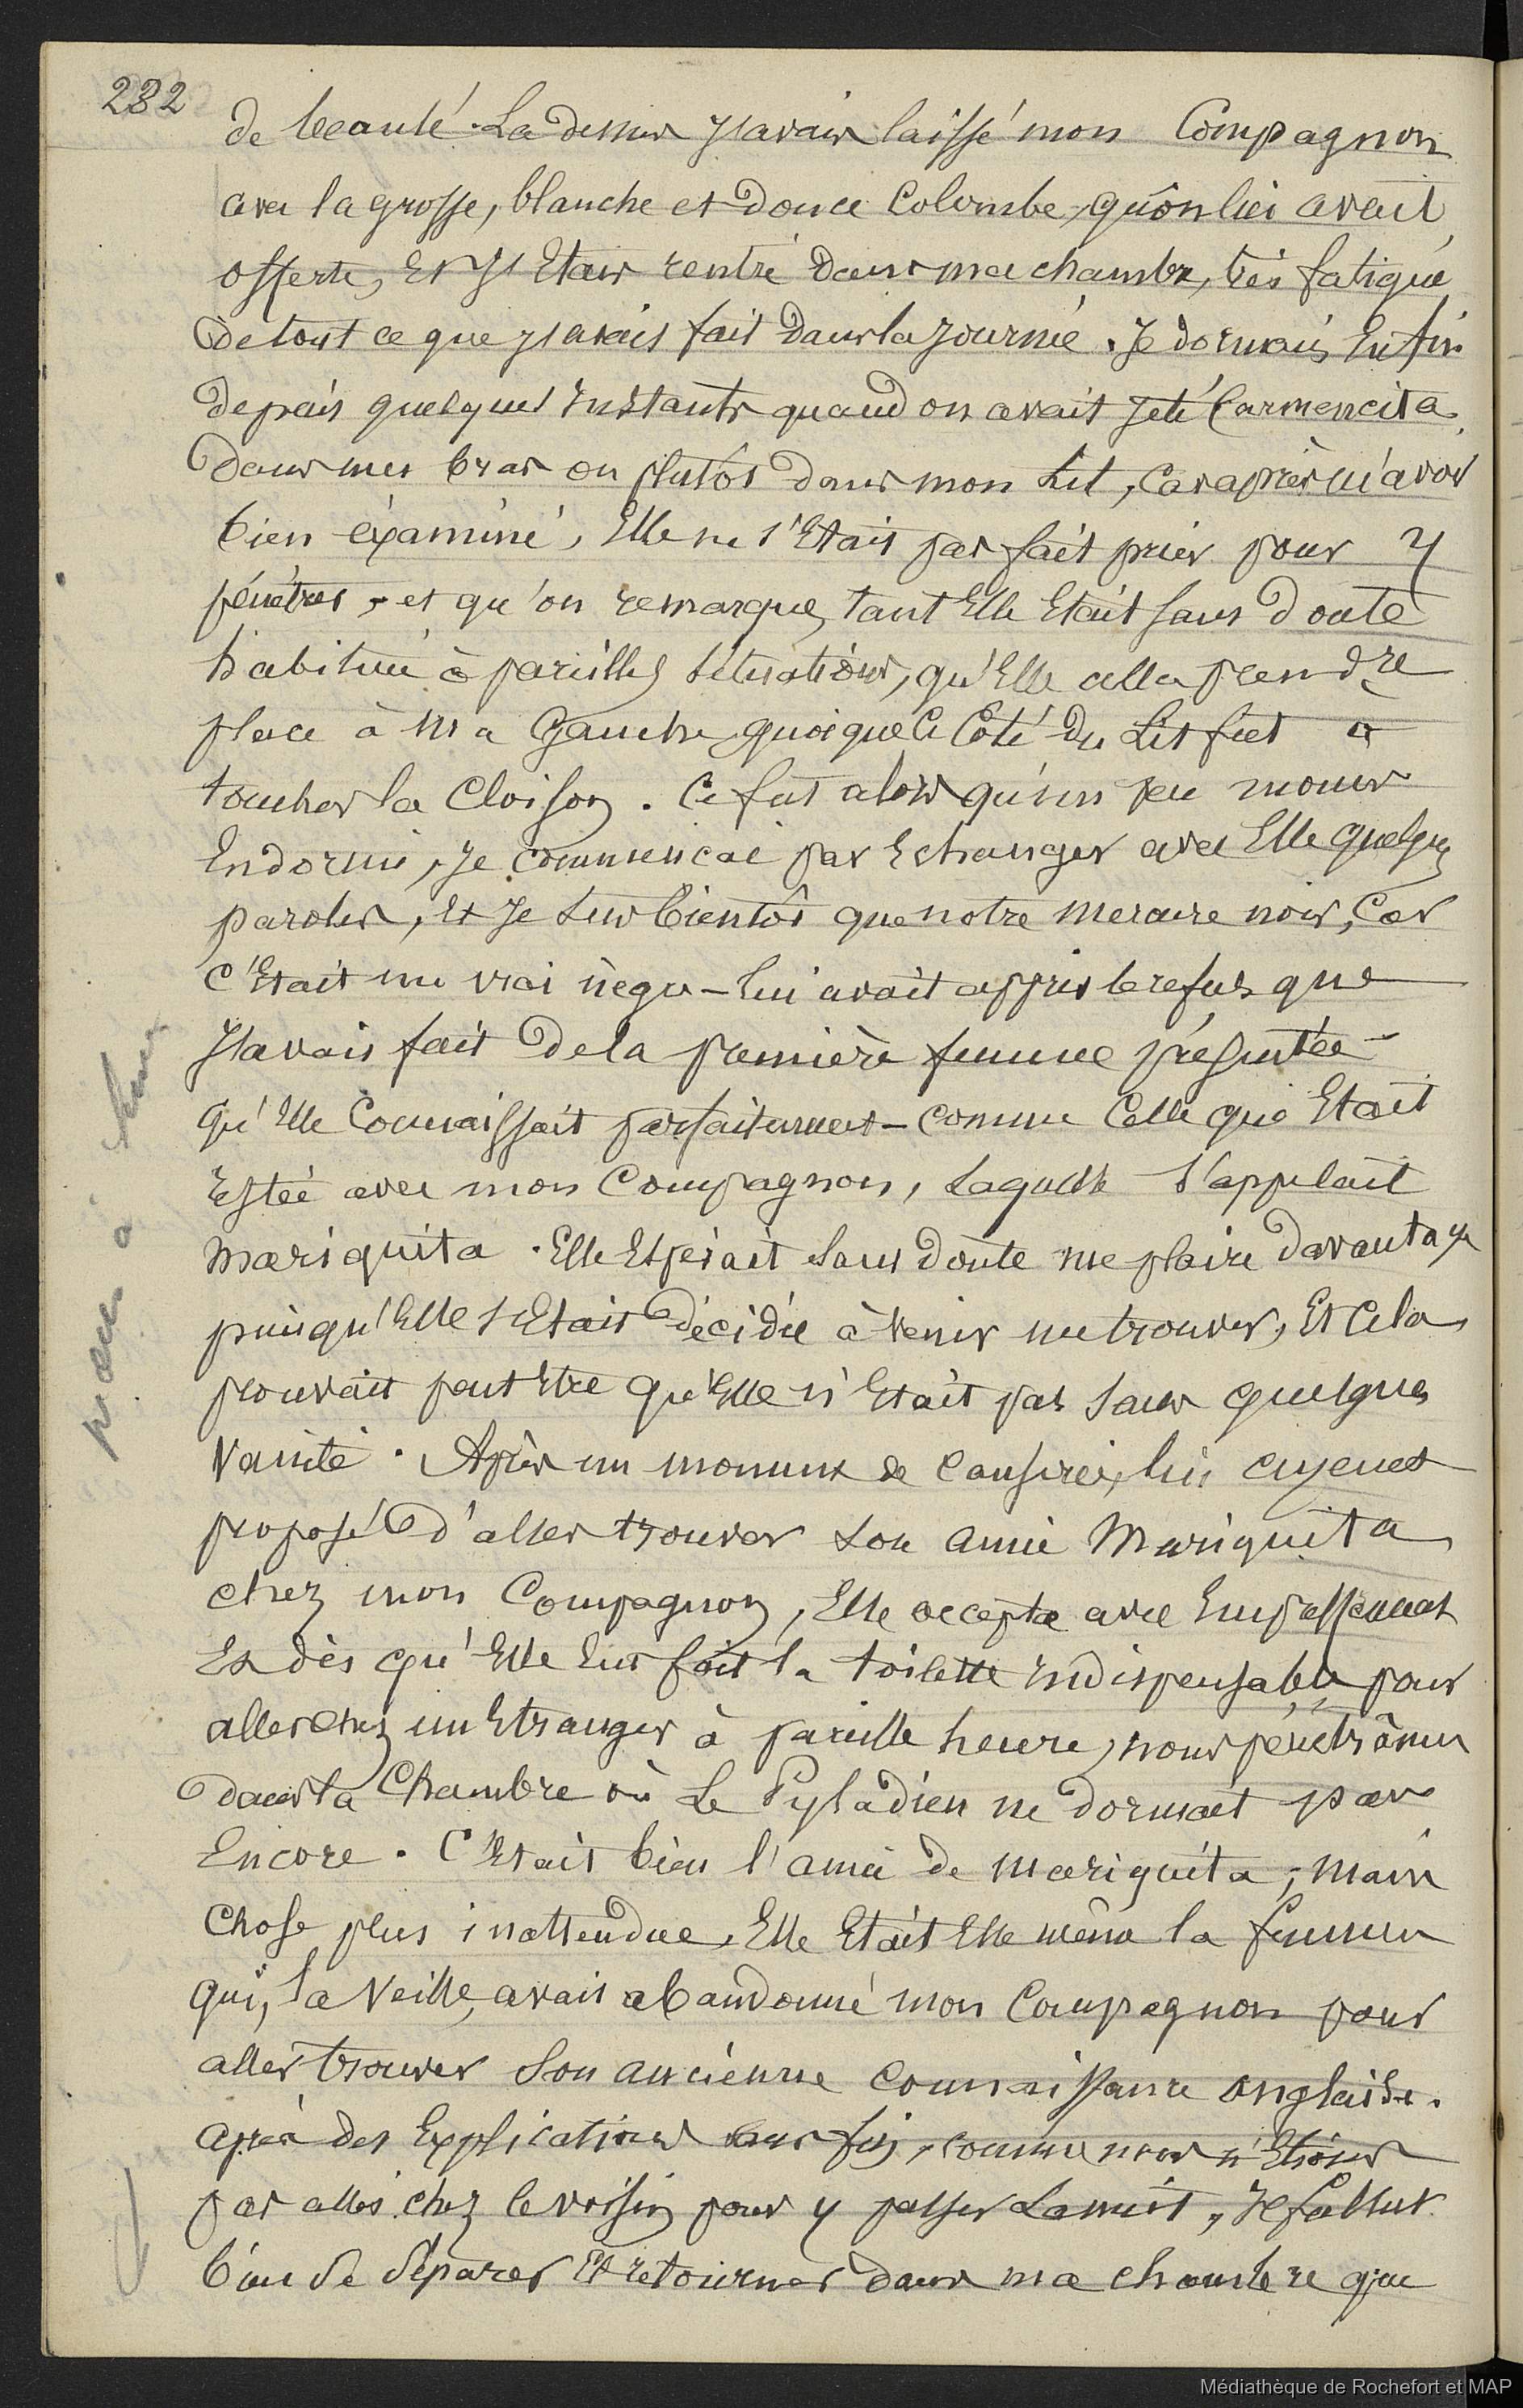 232
de beauté. La dessus j'avais laissé mon Compagnon
avec la grosse, blanche et douce Colombe qu'on lui avait
offerte, et j'étais rentré dans ma chambre, très fatigué
de tout ce que j'avais fait dans la journée. Je dormais enfin
depuis quelques instants quand on avait jeté Carmencita
dans mes bras ou plutôt dans mon lit, car après m'avoir
bien éxaminé, Elle ne s'était pas fait prier pour y
pénétrer, et qu'on remarque, tant Elle était sans doute
habituée à pareilles situations, qu'Elle alla prendre
place à ma Gauche quoique le Côté du Lit fut à
toucher la Cloison. Ce fut alors qu'un peu moins
Endormi, je commençai par Echanger avec Elle quelques
paroles, et je sus bientôt que notre mercure noir, car
c'était un vrai nègre - lui avait appris le refus que
j'avais fait de la première femme présentée -
qu'Elle Connaissait parfaitement - comme Celle qui Etait
restée avec mon Compagnon, laquelle s'appelait
Mariquita. Elle Espérait sans doute me plaire davantage
puisqu'Elle s'était décidée à venir me trouver, Et Cela
prouvait peut Etre qu'Elle n'Etait pas sans quelques
Vanité. Après un moment de Causerie, lui ayant
proposé d'aller trouver son amie Mariquita
chez mon Compagnon, Elle accepta avec Empressement
Et dès qu'Elle eut fait la toilette indispensable pour
aller chez un Etranger à pareille heure, nous pénétrâmes
dans la Chambre où Le Pyladien ne dormait pas
Encore. C'Etait bien l'amie de Mariquita; mais
Chose plus inattendue, Elle Etait Elle même la femme
qui, la Veille, avait abandonné mon Compagnon pour
aller trouver son ancienne connaissance anglaise.
Après des Explications sans fin, comme nous n'Etions
pas allés chez le voisin pour y passer la nuit, il fallut
bien se séparer Et retourner dans ma chambre que
Médiathèque de Rochefort et MAP